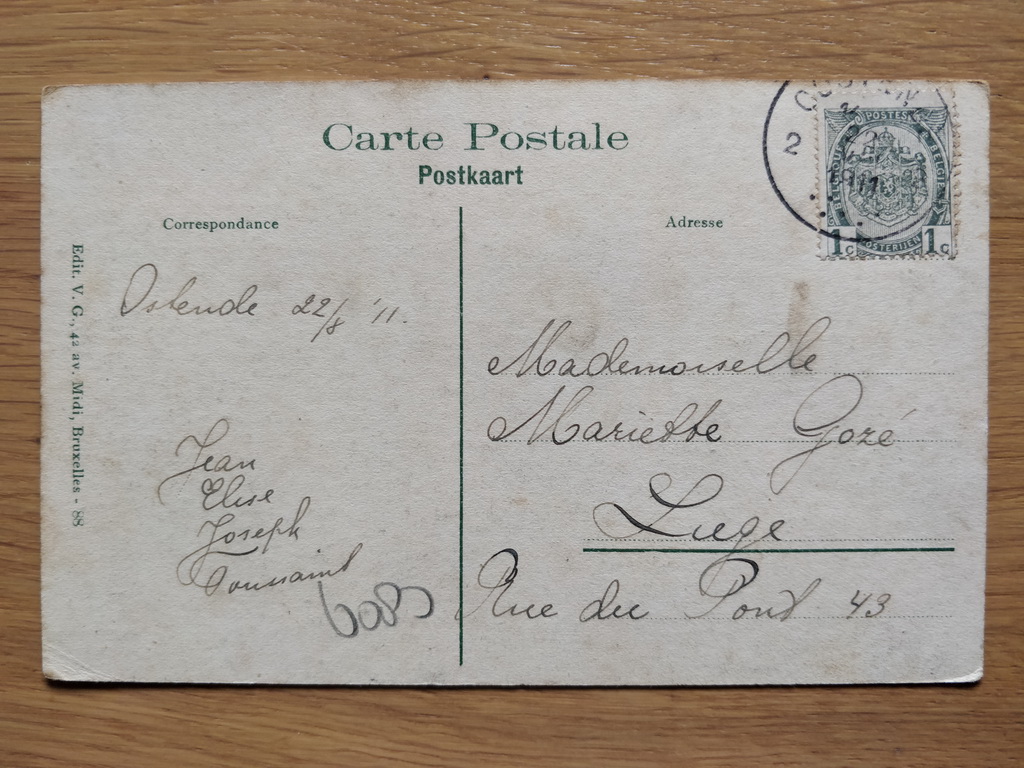 Carte Postale
Postkaart
Correspondance
Adresse
Edit. V. G., 42 av. Midi, Bruxelles - 88
2
1911
POSTES
1c 1c
Ostende 22/8 '11.
Jean
Elise
Joseph
Toussaint
6085
Mademoiselle
Mariette Gozé
Liege
Rue du Pont 43